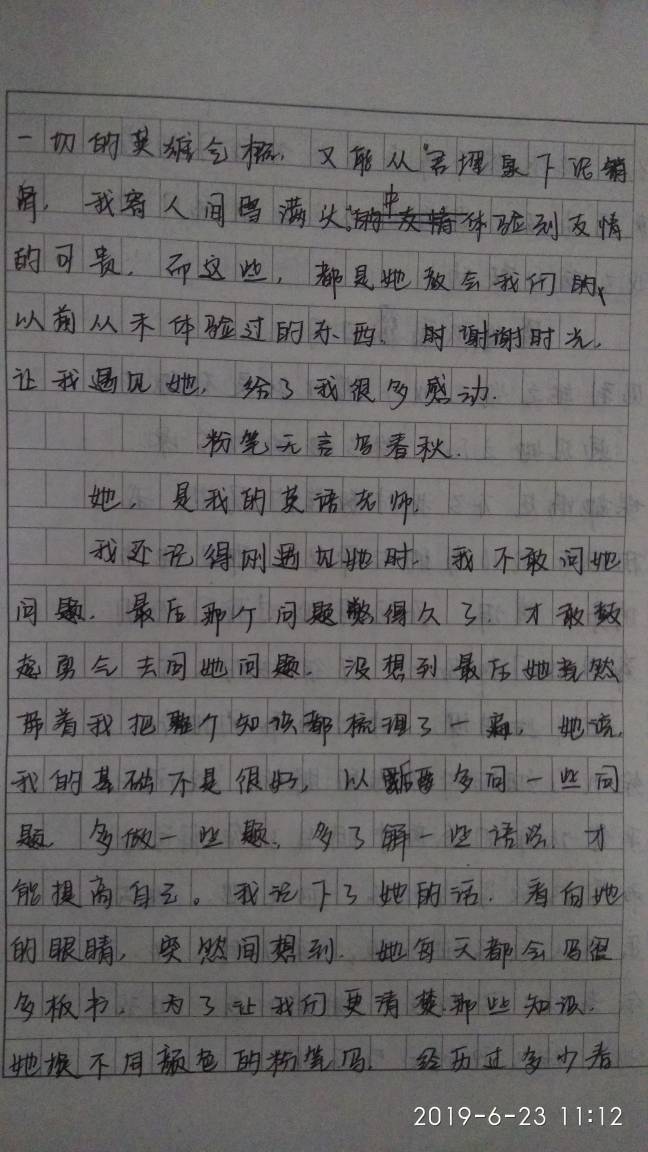 一切的英雄气概，又能从“君埋泉下泥销
骨，我寄人间雪满头”中体验到友情
的可贵，而这些，都是她教会我们的，
以前从未体验过的东西，时谢谢时光，
让我遇见她，给了我很多感动.
粉笔无言写春秋.
她，是我的英语老师.
我还记得刚遇见她时，我不敢问她
问题，最后那个问题憋得久了，才敢鼓
起勇气去问她问题，没想到最后她竟然
带着我把整个知识都梳理了一遍，她说，
我的基础不是很好，以后要多问一些问
题，多做一些题，多了解一些语法，才
能提高自己。我记下了她的话，看向她
的眼睛，突然间想到，她每天都会写很
多板书，为了让我们更清楚那些知识，
她换不同颜色的粉笔写，经历过多少春
2019-6-23 11:12